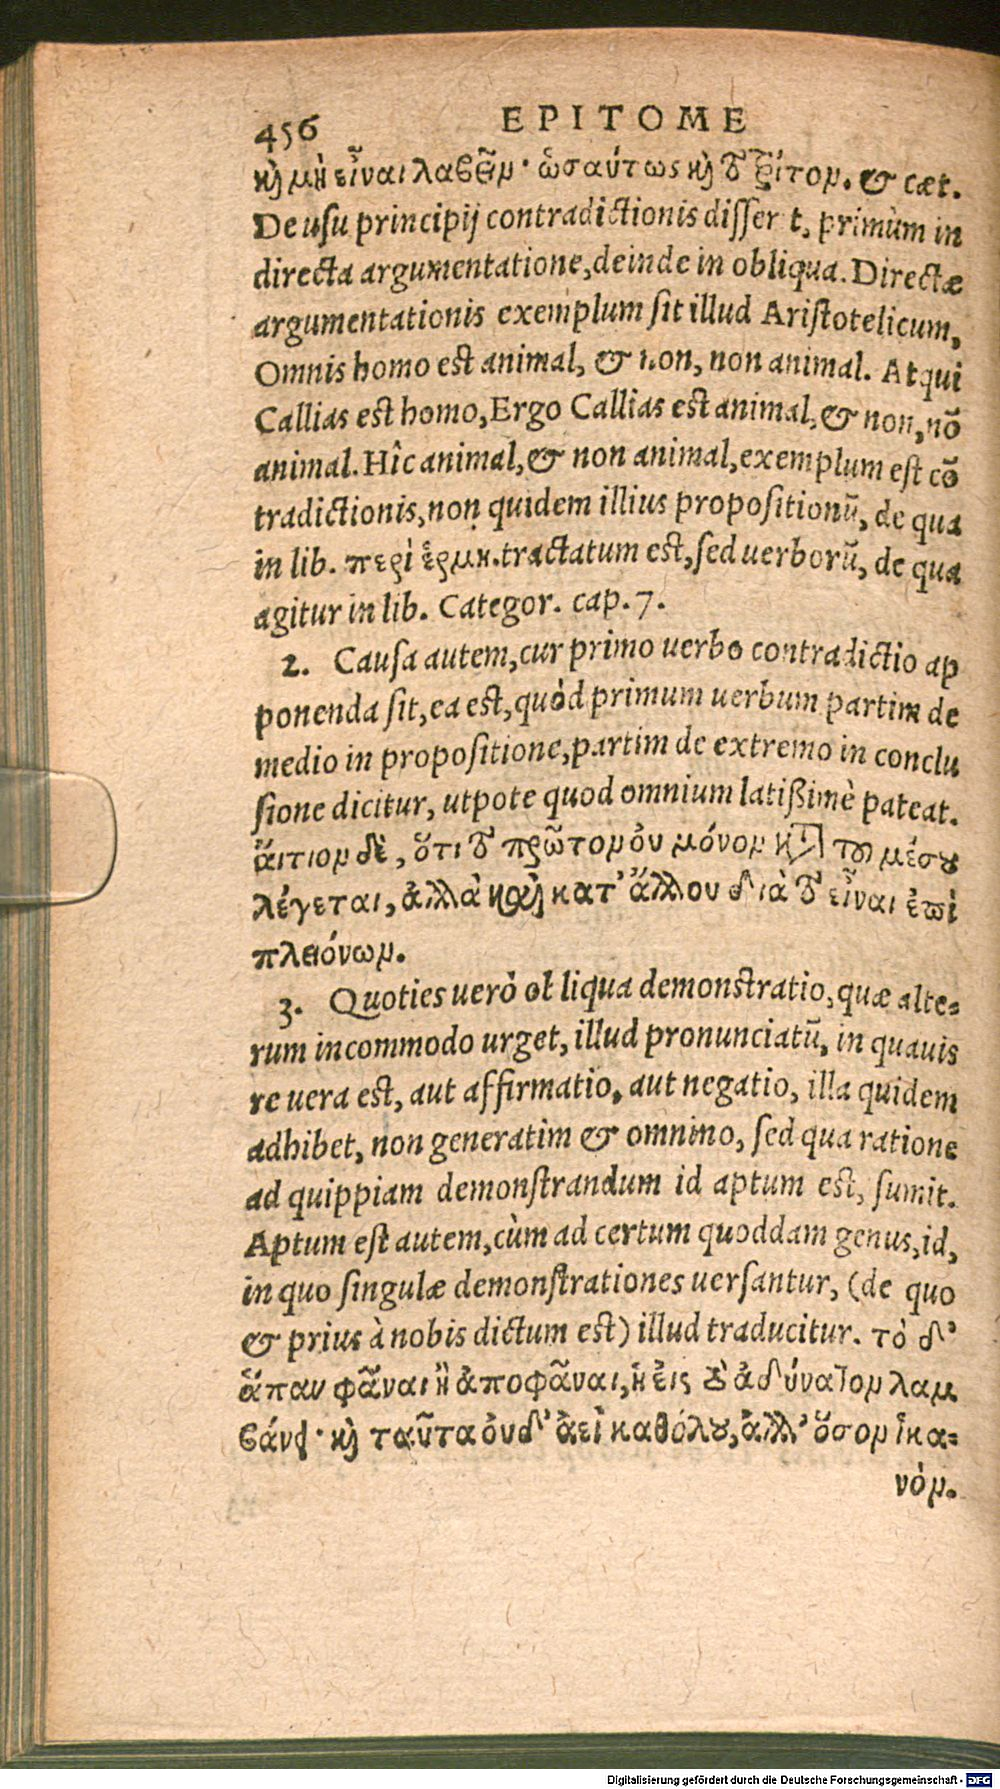 456 EPITOME
καὶ μὴ εἶναι λαβεῖν· ὡσαύτως καὶ τὸ τρίτον. & cæt.
De usu principij contradictionis disser t, primùm in
directa argumentatione, deinde in obliqua. Directæ
argumentationis exemplum sit illud Aristotelicum,
Omnis homo est animal, & non, non animal. Atqui
Callias est homo, Ergo Callias est animal, & non, nō
animal. Hîc animal, & non animal, exemplum est cō
tradictionis, non quidem illius propositionū, de qua
in lib. περὶ ἑρμη. tractatum est, sed uerborū, de qua
agitur in lib. Categor. cap. 7.
2. Causa autem, cur primo uerbo contradictio ap
ponenda sit, ea est, quòd primum uerbum partim de
medio in propositione, partim de extremo in conclu
sione dicitur, utpote quod omnium latißimè pateat.
ἄιτιον δὲ, ὅτι τὸ πρῶτον ὀυ μόνον κατὰ του μέσου
λέγεται, ἀλλὰ καὶ κατ' ἄλλου διὰ τὸ εἶναι ἐπὶ
πλειόνων.
3. Quoties uerò ob liqua demonstratio, quæ alte=
rum incommodo urget, illud pronunciatū, in quauis
re uera est, aut affirmatio, aut negatio, illa quidem
adhibet, non generatim & omnino, sed qua ratione
ad quippiam demonstrandum id aptum est, sumit.
Aptum est autem, cùm ad certum quoddam genus, id,
in quo singulæ demonstrationes uersantur, (de quo
& prius à nobis dictum est) illud traducitur. τὸ δ'
ἅπαν φᾶναι ἢ ἀποφᾶναι, ἡ εἰς τὸ ἀδύνατον λαμ
βάνει· καὶ ταῦτα ὀυδ' ἀεὶ καθόλου, ἀλλ' ὅσον ἱκα=
νόν.
Digitalisierung gefördert durch die Deutsche Forschungsgemeinschaft - DFG